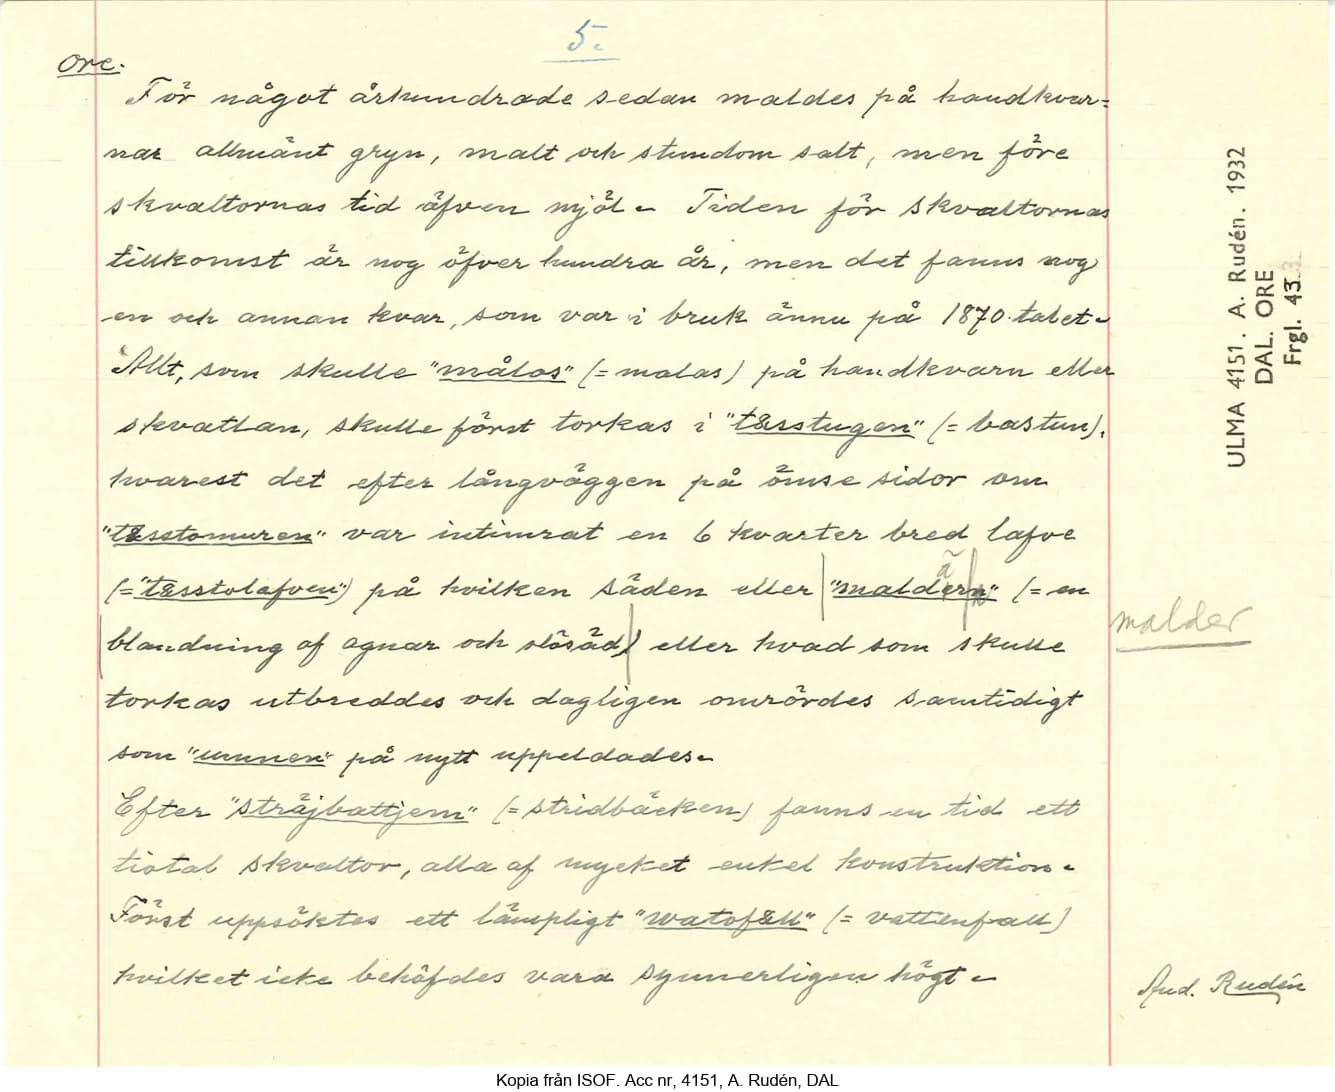 5.
Ore.
För något århundrade sedan maldes på handkvar=
nar allmänt gryn, malt och stundom salt, men före
skvaltornas tid äfven mjöl. Tiden för skvaltornas
tillkomst är nog öfver hundra år, men det fanns nog
en och annan kvar, som var i bruk ännu på 1870-talet.
Allt, som skulle "målas" (= malas) på handkvarn eller
skvaltan, skulle först torkas i "tässtugen" (= bastun),
hvarest det efter långväggen på ömse sidor om
"tässtomuren" var intimrat en 6 kvarter bred lafve
(= "tässtolafven") på hvilken säden eller "maldern" (= en
blandning af agnar och slösäd) eller hvad som skulle
torkas utbreddes och dagligen omrördes samtidigt
som "umnen" på nytt uppeldades.
Efter "sträjbattjem" (= stridbäcken) fanns en tid ett
tiotal skvaltor, alla af mycket enkel konstruktion.
Först uppsöktes ett lämpligt "watofäll" (= vattenfall)
hvilket icke behöfdes vara synnerligen högt.
malder
And. Rudén
ULMA 4151. A. Rudén. 1932
DAL. ORE
Frgl. 43
Kopia från ISOF. Acc nr, 4151, A. Rudén, DAL